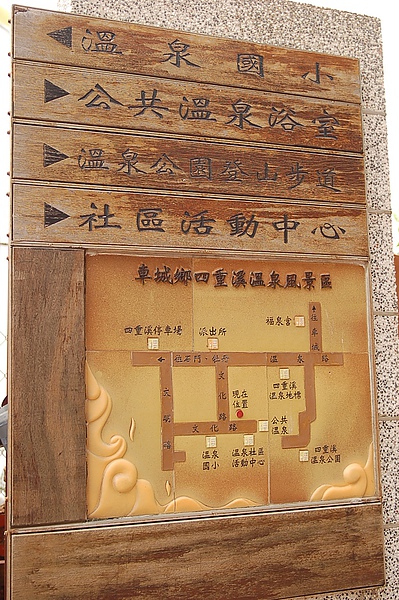 溫泉國小
公共溫泉浴室
溫泉公園登山步道
社區活動中心
車城鄉四重溪溫泉風景區
往車城
福泉宮
四重溪停車場
派出所
往石門、牡丹
溫泉路
文化路
現在
位置
四重溪
溫泉地標
文化路
公共
溫泉
溫泉
國小
溫泉社區
活動中心
四重溪
溫泉公園